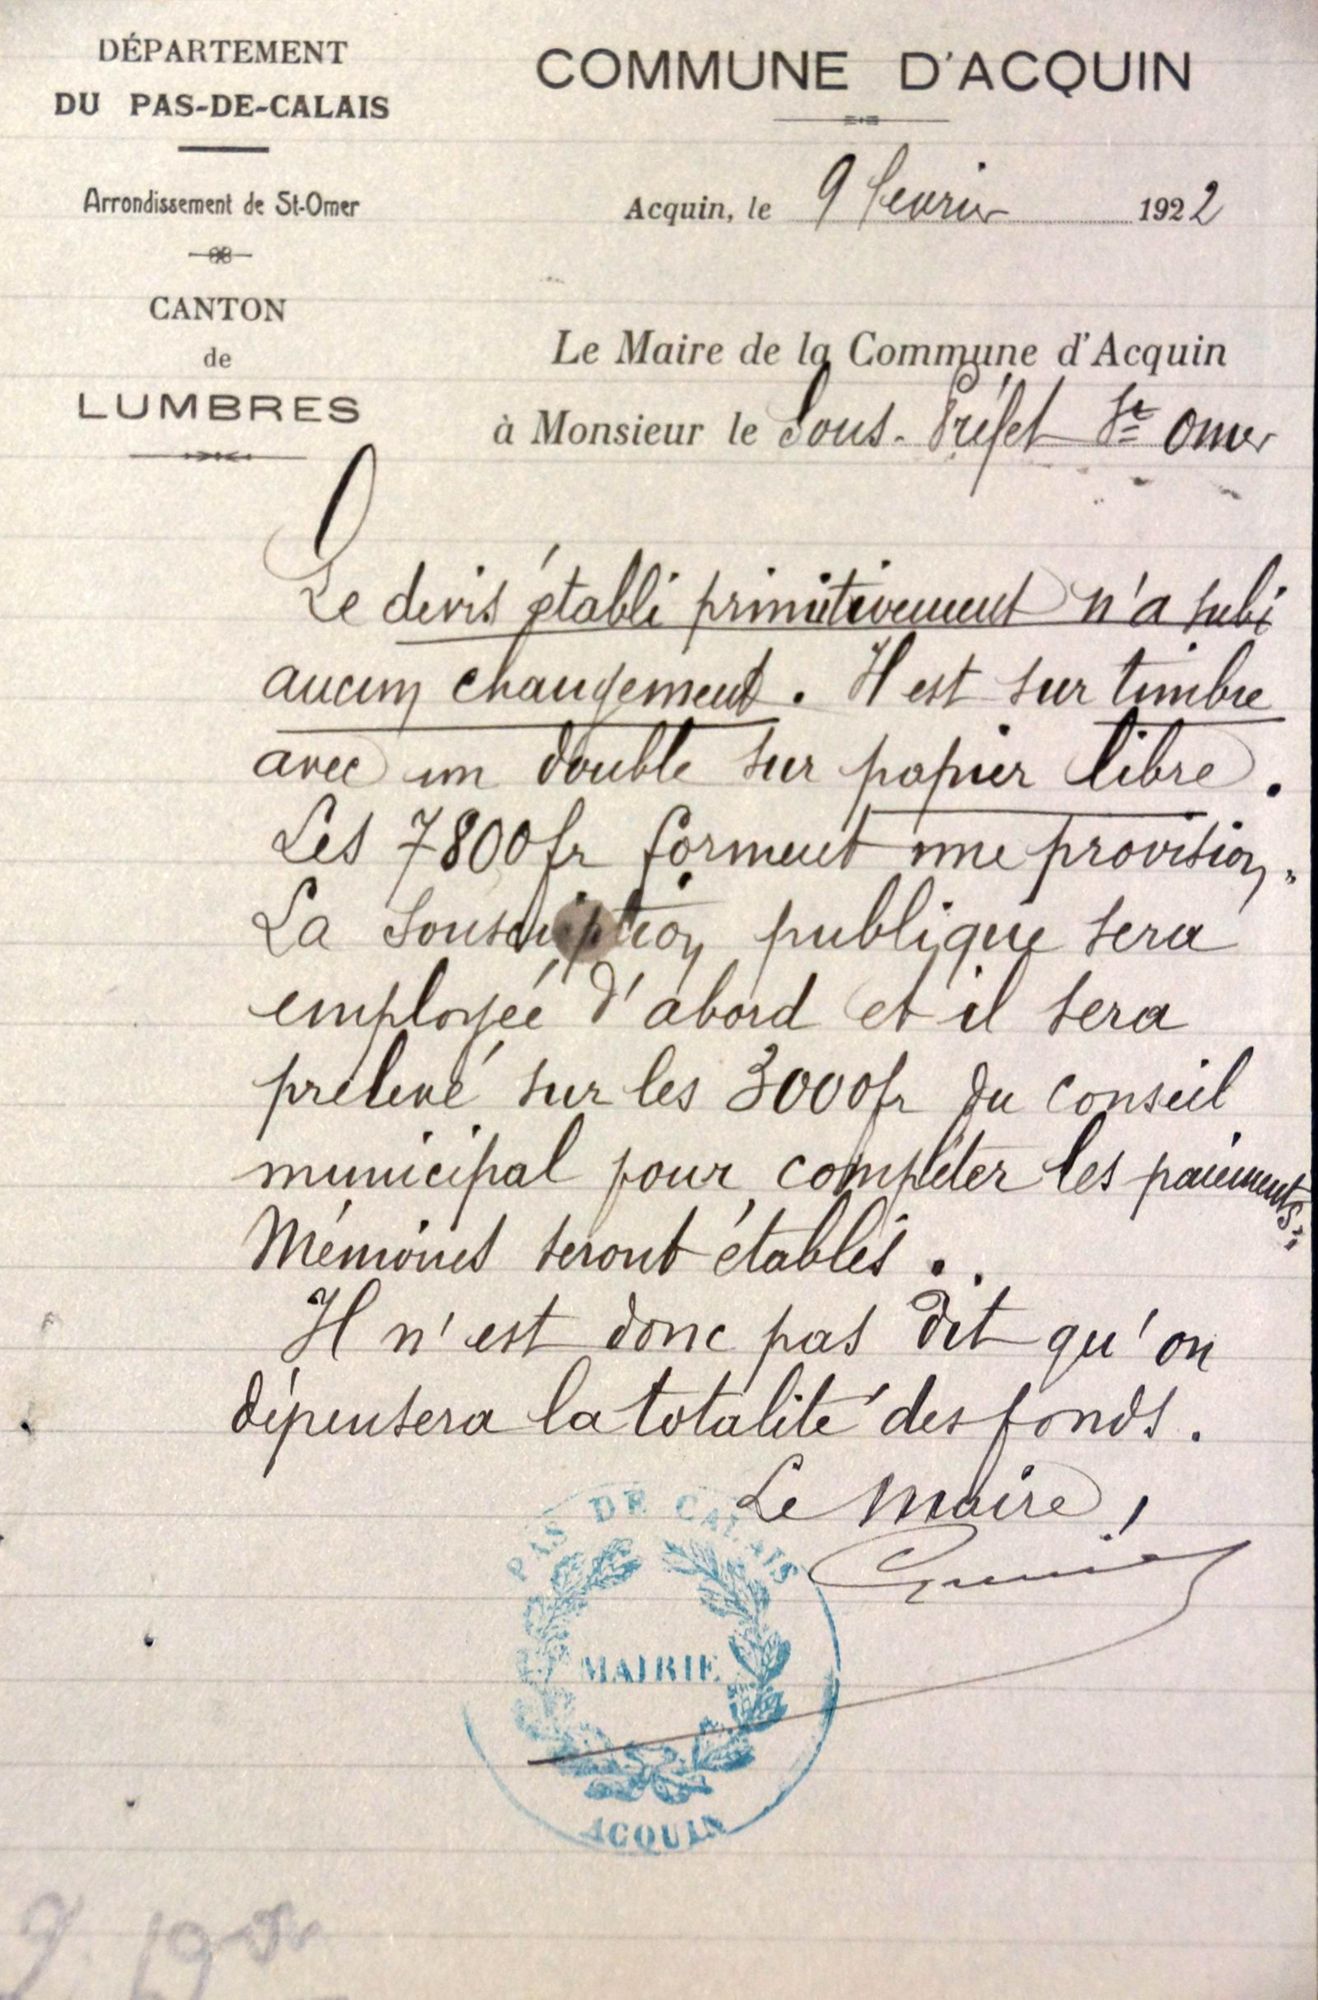 DÉPARTEMENT
DU PAS-DE-CALAIS
Arrondissement de St-Omer
CANTON
de
LUMBRES
COMMUNE D'ACQUIN
Acquin, le 9 fevrier 1922
Le Maire de la Commune d'Acquin
à Monsieur le Sous-Préfet St Omer
Le devis établi primitivement n'a subi
aucun changement. Il est sur timbre
avec un double sur papier libre.
Les 7800fr forment une provision.
La souscription publique sera
employée d'abord et il sera
prélevé sur les 3000fr du conseil
municipal pour compléter les paiements.
Mémoires seront établis.
Il n'est donc pas dit qu'on
dépensera la totalité des fonds.
Le Maire,
PAS DE CALAIS
MAIRIE
ACQUIN